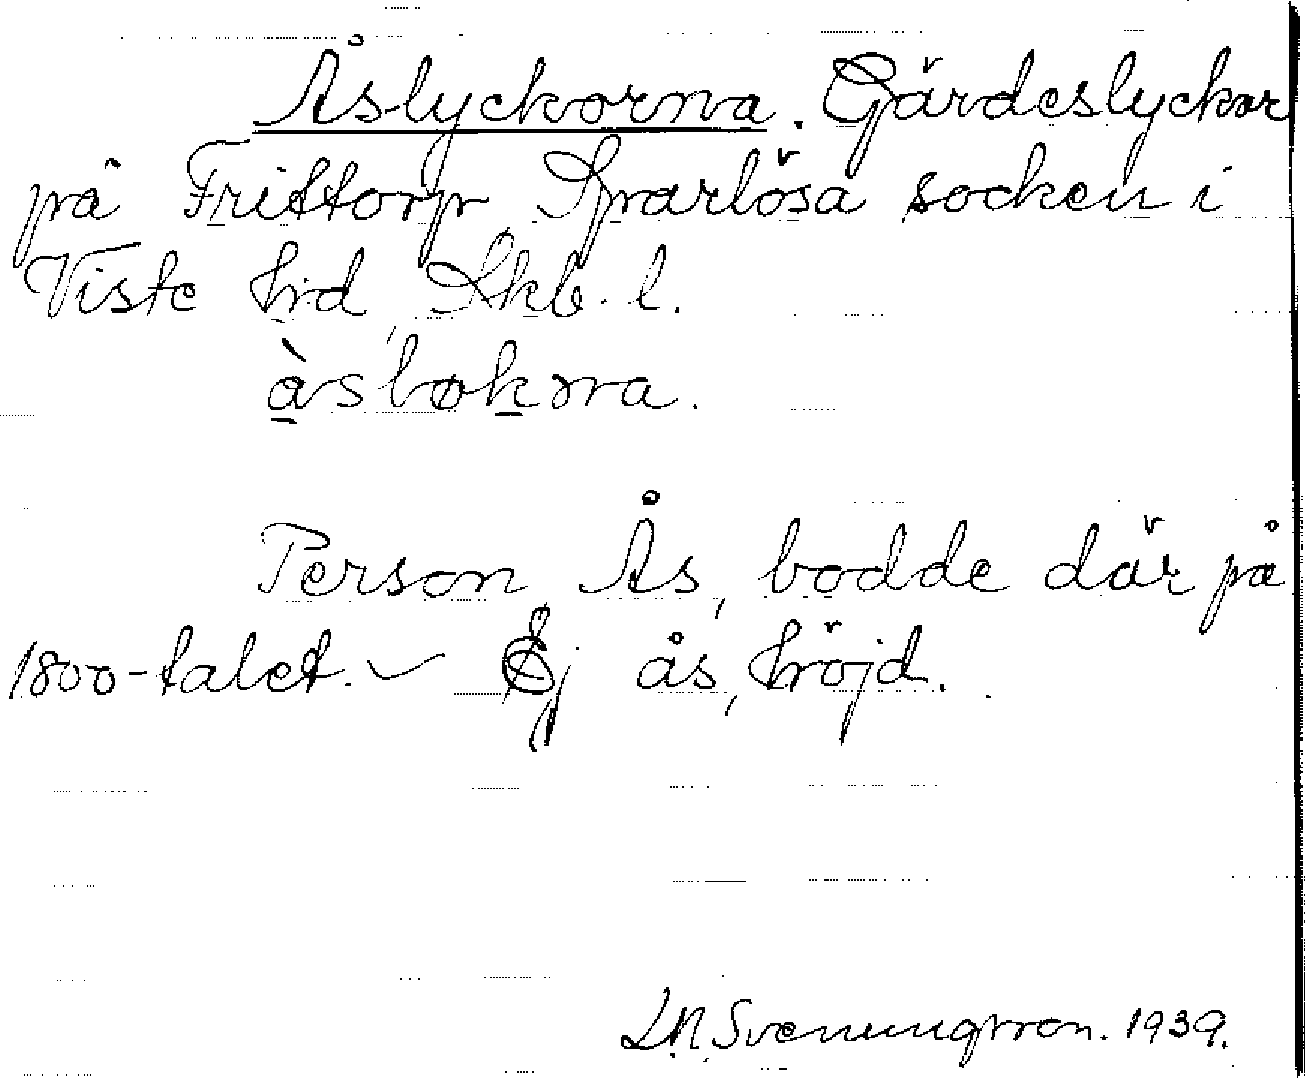 Åslyckorna. Gärdeslyckor
på Frittorp, Sparlösa socken i
Viste hrd, Skb. l.
Person, Ås, bodde där på
1800-talet. Ej ås, höjd.
Svenungsson. 1939.